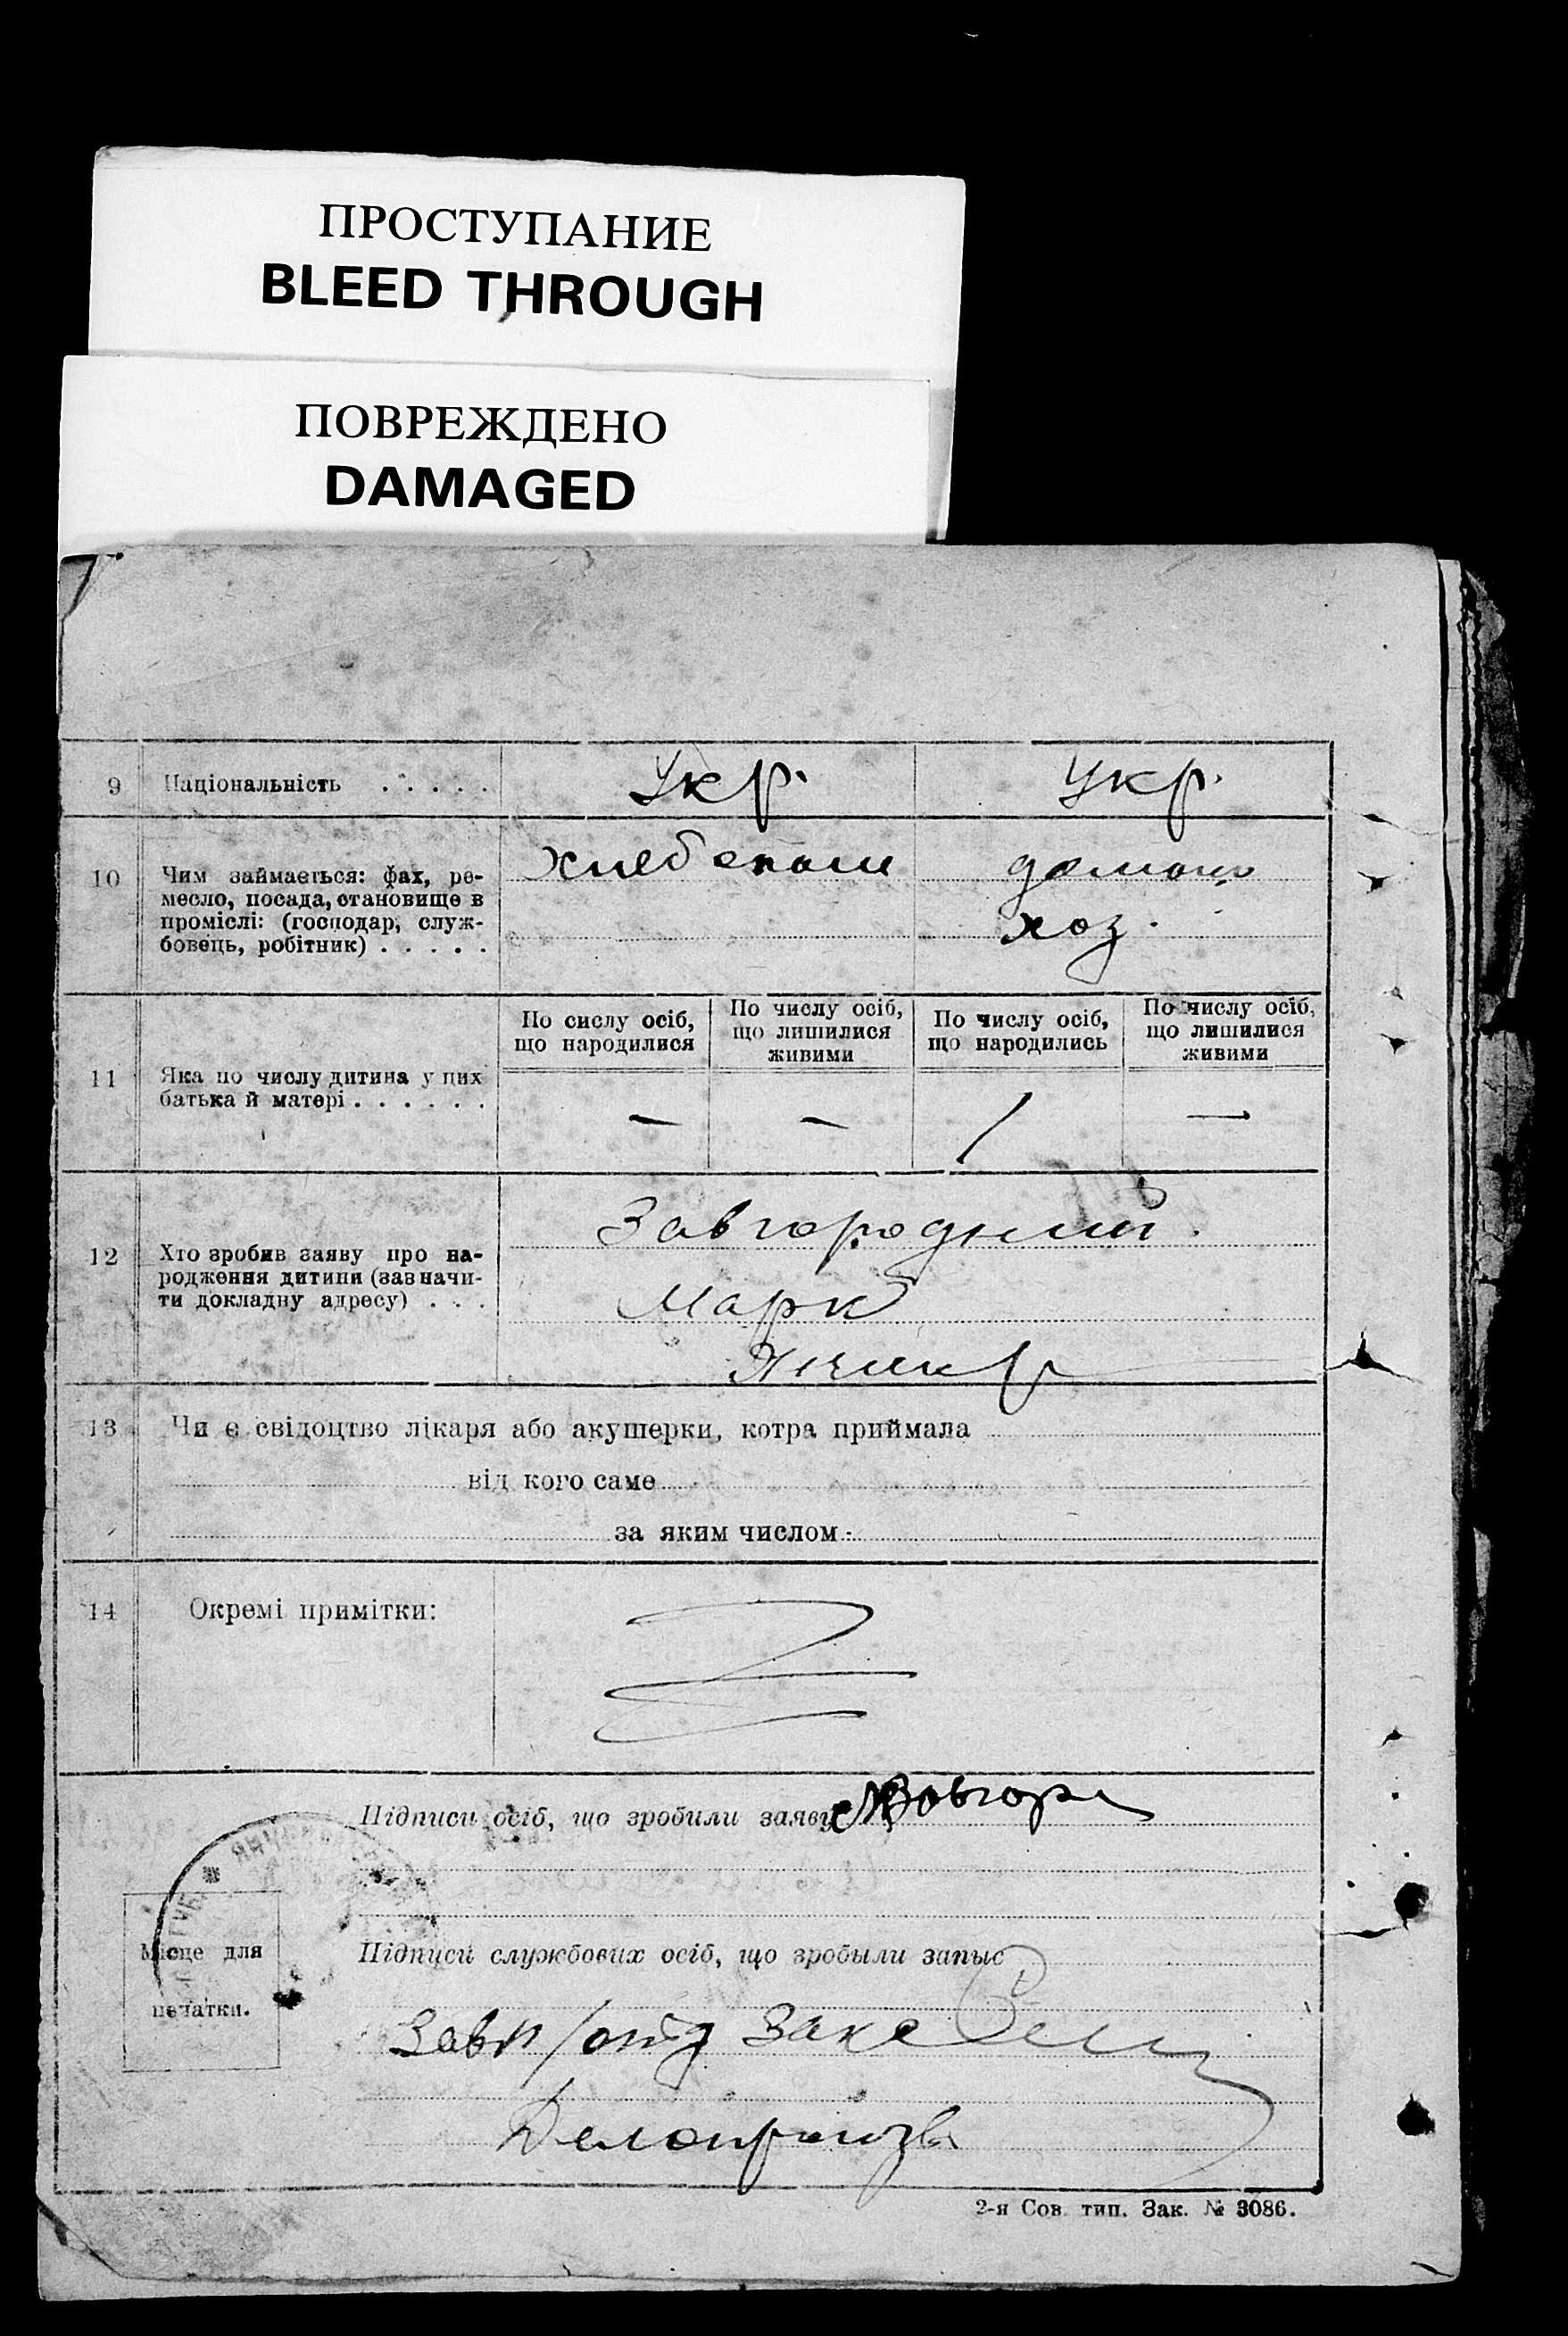 ПРОСТУПАНИЕ
BLEED THROUGH
ПОВРЕЖДЕНО
DAMAGED
9 Національність . . . . . Укр. Укр.
10 Чим займається: фах, ре-
месло, посада, становище в
проміслі: (господар, служ-
бовець, робітник) . . . . .
хлебопаш
домаш
хоз.
11 Яка по числу дитина у цих
батька й матері . . . . . .
По сислу осіб,
що народилися
По числу осіб,
що лишилися
живими
По числу осіб,
що народились
По числу осіб,
що лишилися
живими
— — 1 —
12 Хто зробив заяву про на-
родження дитини (зазначи-
ти докладну адресу) . . .
Завгородний.
Марк
13 Чи є свідоцтво лікаря або акушерки, котра приймала
від кого саме
за яким числом
14 Окремі примітки:
Підписи осіб, що зробили заяву МЗавгор
Місце для
печатки.
Підписи службових осіб, що зробыли запыс
Завп/отд Закс
Делопроизв
2-я Сов. тип. Зак. № 3086.